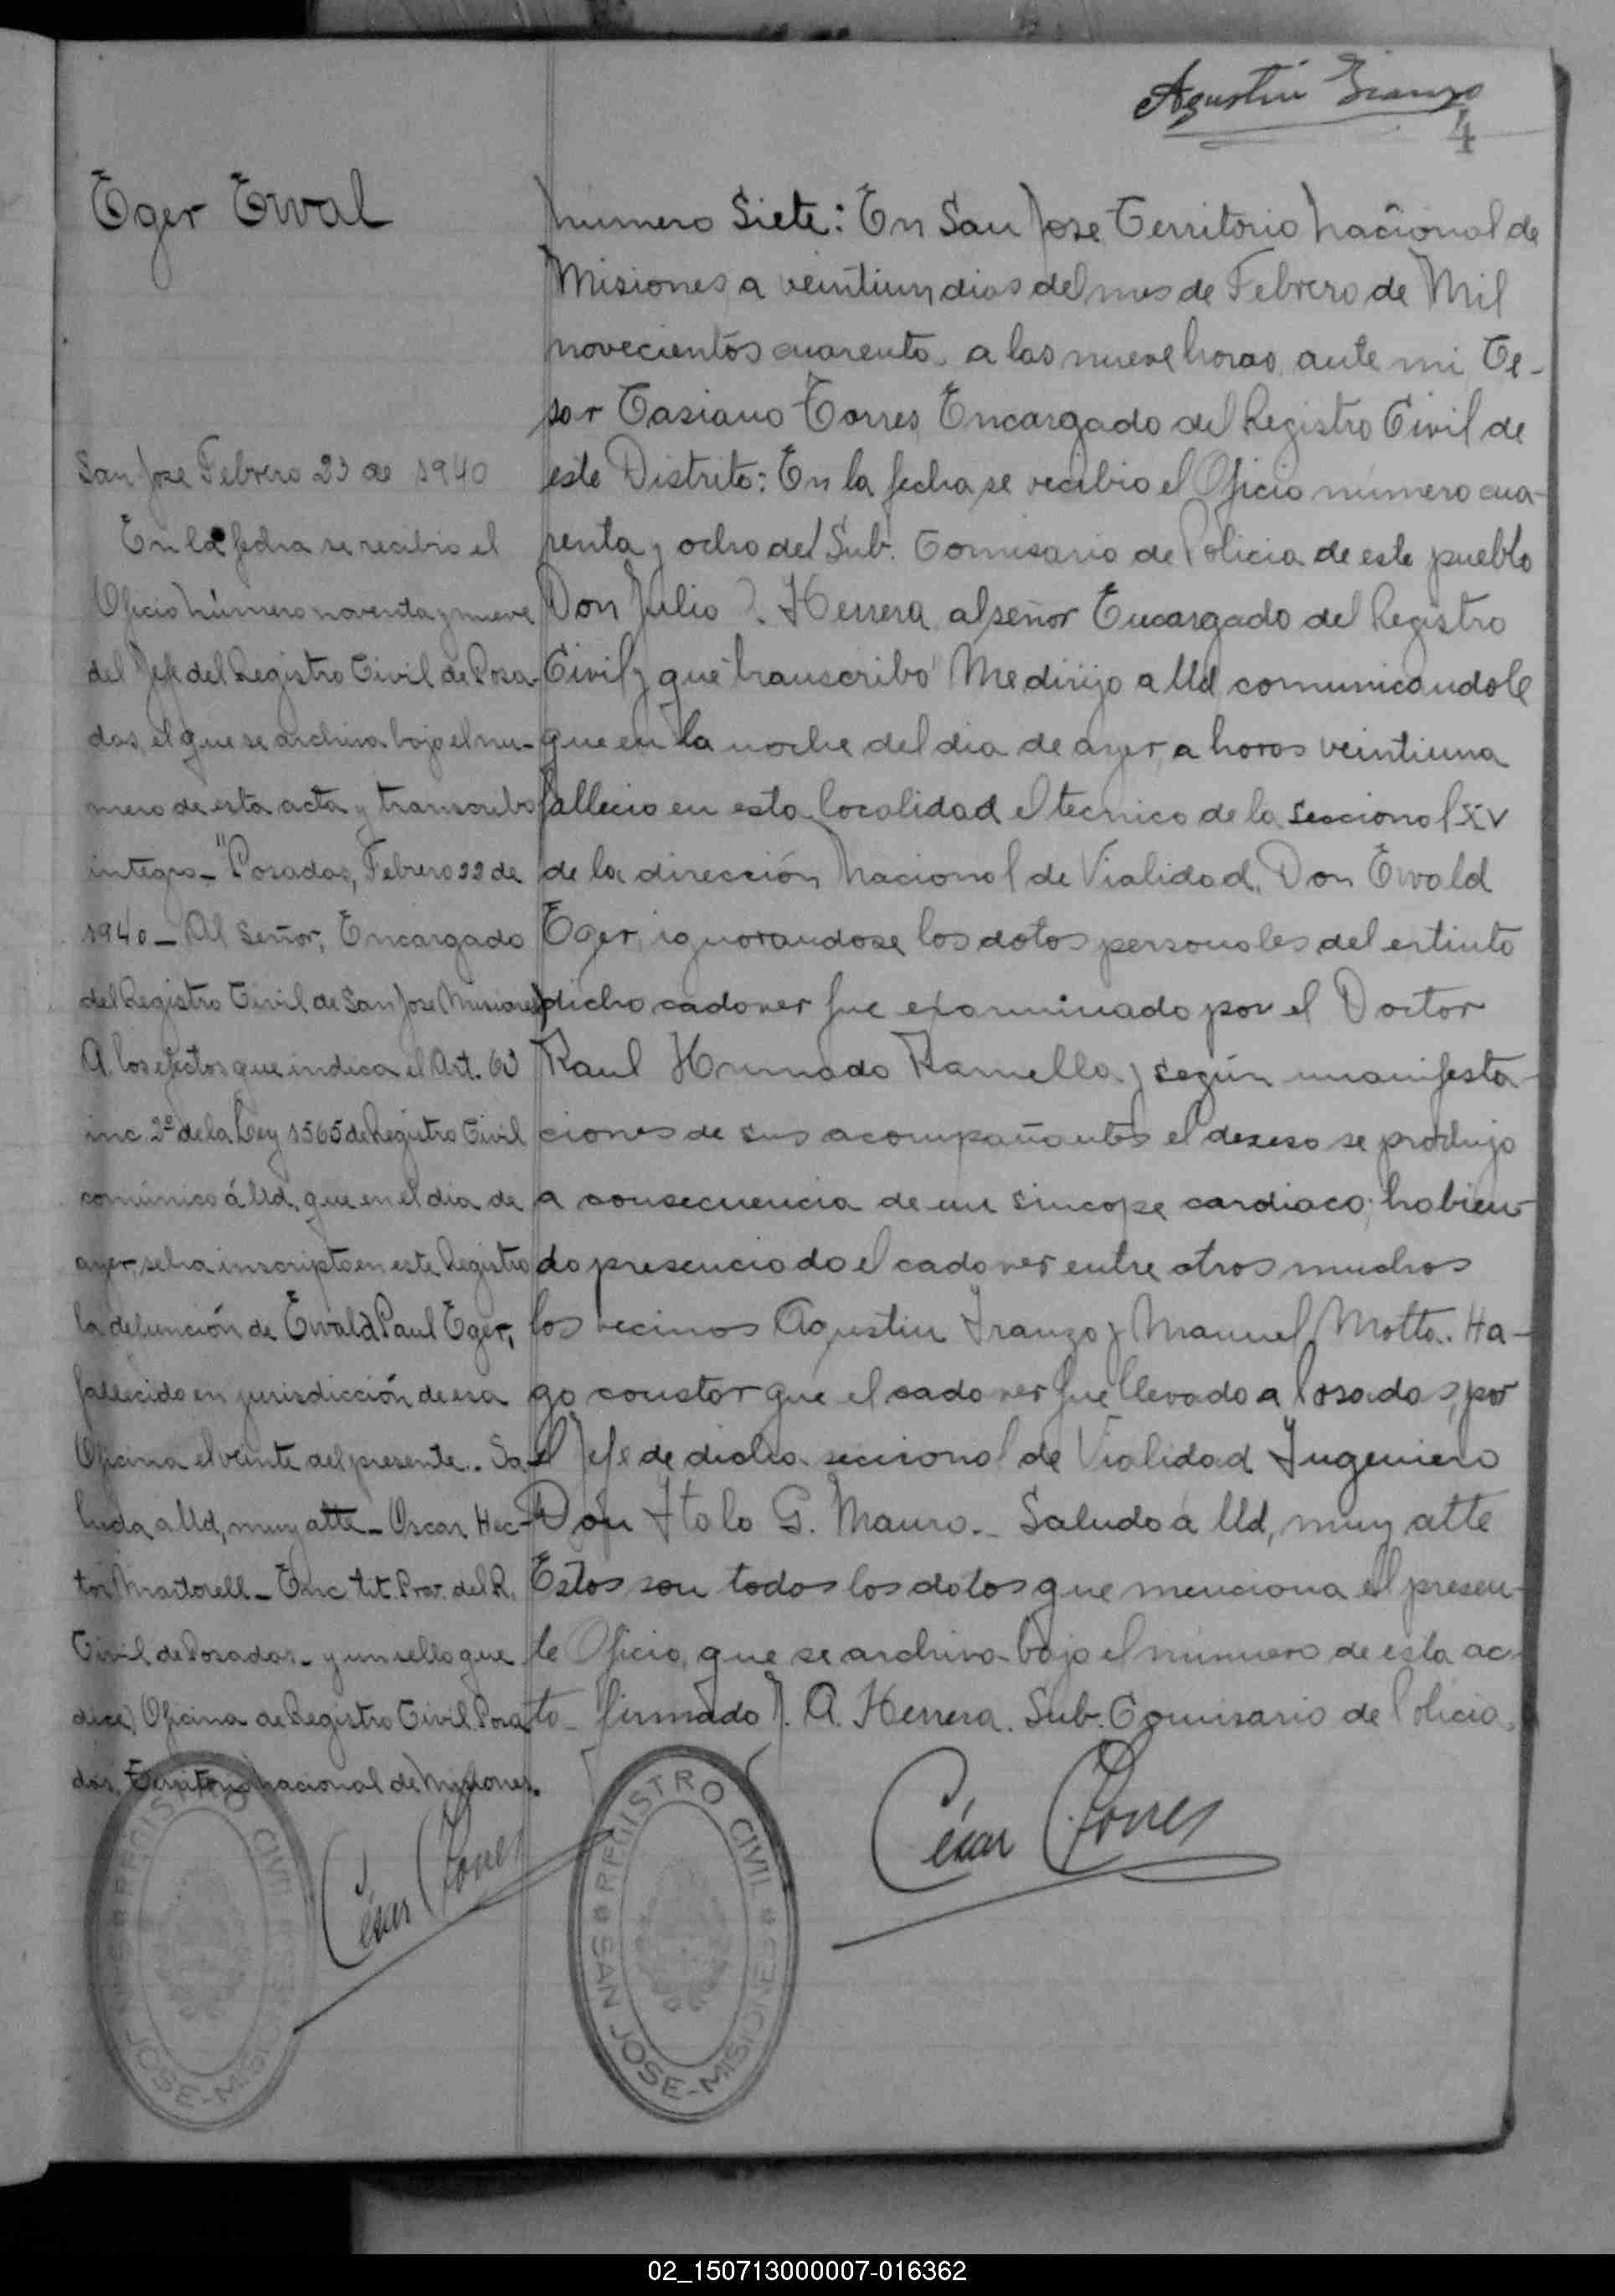 Agustín Iranzo
4
Eger Ewal
San Jose Febrero 23 de 1940
En la fecha se recibio el
Oficio número noventa y nueve
del Jefe del Registro Civil de Posa-
das, el que se archiva bajo el nu-
mero de esta acta y transcribo
integro - "Posadas, Febrero 22 de
1940 - Al Señor, Encargado
del Registro Civil de San Jose Misiones
A los efectos que indica el Art. 63
inc 2º de la Ley 1565 de Registro Civil
comúnico á Ud, que en el dia de
ayer, se ha inscripto en este Registro
la defunción de Ewald Paul Eger,
fallecido en jurisdicción de esa
Oficina el veinte del presente. Sa-
luda a Ud, muy atte - Oscar Hec-
tor Martorell - Enc tit. Prov. del R.
Civil de Posadas - y un sello que
dice) Oficina de Registro Civil Posa-
das, Territorio nacional de Misiones.
César Torres
REGISTRO CIVIL
JOSE-MISIONES
Número Siete: En San Jose Territorio Nacional de
Misiones a veintiun dias del mes de Febrero de Mil
novecientos cuarenta a las nueve horas, ante mi Ce-
sar Casiano Torres Encargado del Registro Civil de
este Distrito: En la fecha se recibio el Oficio número cua-
renta y ocho del Sub. Comisario de Policia de este pueblo
Don Julio Herrera, al señor Encargado del Registro
Civil, que transcribo "Me dirijo a Ud comunicandole
que en la noche del dia de ayer, a horas veintiuna
fallecio en esta localidad el tecnico de la seccional XV
de la dirección Nacional de Vialidad, Don Ewald
Eger, ignorandose los datos personales del extinto
dicho cadaver fue examinado por el Doctor
Raul Ramella y según manifesta-
ciones de sus acompañantes el deseso se produjo
a consecuencia de un sincope cardiaco; habien-
do presenciado el cadaver entre otros muchos
los vecinos Agustin Iranzo y Manuel Motta. Ha-
go constar que el cadaver fue llevado a Posadas, por
el Jefe de dicha seccional de Vialidad Ingeniero
Don Italo G. Mauro.- Saludo á Ud, muy atte
Estos son todos los datos que menciona el presen-
te Oficio, que se archiva bajo el número de esta ac-
ta - firmado J. A. Herrera. Sub. Comisario de Policia.
REGISTRO CIVIL
SAN JOSE-MISIONES
César Torres
02_150713000007-016362